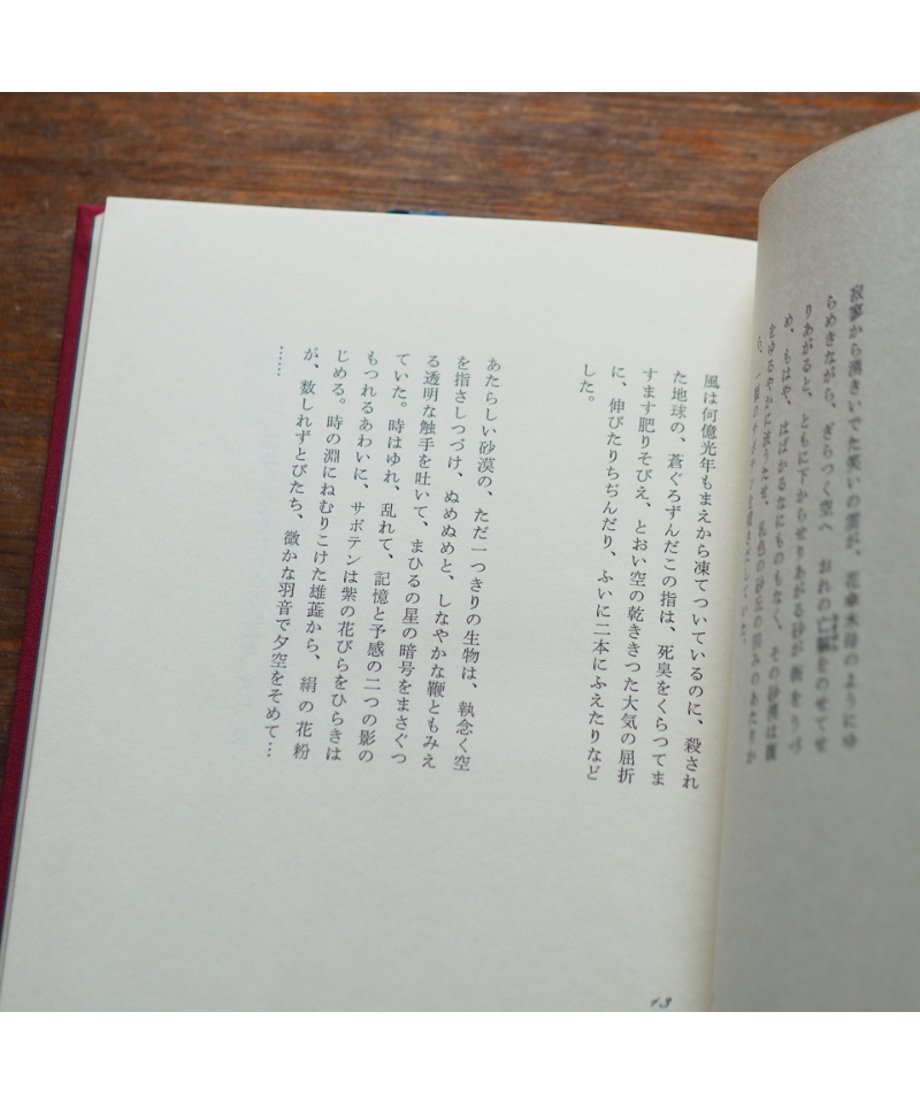 寂寥から湧きいでた笑いの雲が、花
のようにゆ
らめきながら、ぎらつく空へ　おれの亡
をのせてせ
りあがると、ともに下からせりあがる砂が街をうづ
め、もはや、はばかるなにものもなく、その砂漠は
をゆるやかに波うたせ、
色の砂丘の凹みのあたりか
風は何億光年もまえから凍てついているのに、殺され
た地球の、蒼ぐろずんだこの指は、死臭をくらつてま
すます肥りそびえ、とおい空の乾ききつた大気の屈折
に、伸びたりちぢんだり、ふいに二本にふえたりなど
した。
あたらしい砂漠の、ただ一つきりの生物は、執念く空
を指さしつづけ、ぬめぬめと、しなやかな鞭ともみえ
る透明な触手を吐いて、まひるの星の暗号をまさぐつ
ていた。時はゆれ、乱れて、記憶と予感の二つの影の
もつれるあわいに、サボテンは紫の花びらをひらきは
じめる。時の淵にねむりこけた雄蕋から、絹の花粉
が、数しれずとびたち、微かな羽音で夕空をそめて…
……
13